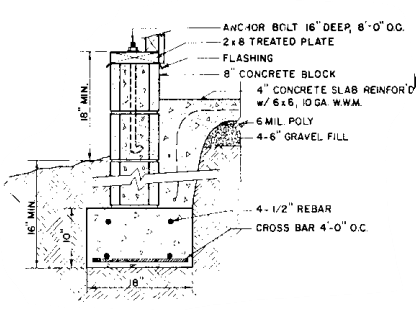 ANCHOR BOLT 16" DEEP, 8'-0" O.C.
2 x 8 TREATED PLATE
FLASHING
8" CONCRETE BLOCK
4" CONCRETE SLAB REINFOR'D
w/ 6 x 6, 10 GA. W.W.M.
6 MIL. POLY
4-6" GRAVEL FILL
18" MIN.
16" MIN.
10"
4- 1/2" REBAR
CROSS BAR 4'-0" O.C.
18"